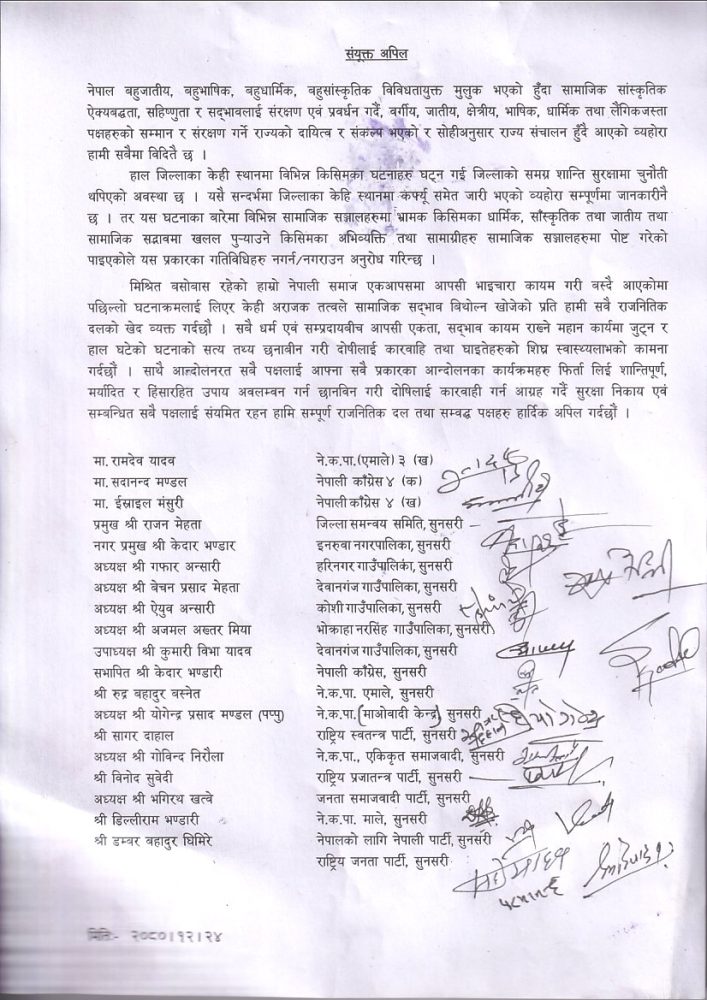 संयूक्त अपिल
नेपाल बहुजातीय, बहुभाषिक, बहुधार्मिक, बहुसांस्कृतिक विविधतायुक्त मुलुक भएको हुँदा सामाजिक सांस्कृतिक
ऐक्यबद्धता, सहिष्णुता र सद्भावलाई संरक्षण एवं प्रवर्धन गर्दै, वर्गीय, जातीय, क्षेत्रीय, भाषिक, धार्मिक तथा लैंगिकजस्ता
पक्षहरुको सम्मान र संरक्षण गर्ने राज्यको दायित्व र संकल्प भएको र सोहीअनुसार राज्य संचालन हुँदै आएको व्यहोरा
हामी सबैमा विदितै छ ।
हाल जिल्लाका केही स्थानमा विभिन्न किसिमका घटनाहरु घट्न गई जिल्लाको समग्र शान्ति सुरक्षामा चुनौती
थपिएको अवस्था छ । यसै सन्दर्भमा जिल्लाका केहि स्थानमा कर्फ्यू समेत जारी भएको व्यहोरा सम्पूर्णमा जानकारीनै
छ । तर यस घटनाका बारेमा विभिन्न सामाजिक सञ्जालहरुमा भ्रामक किसिमका धार्मिक, साँस्कृतिक तथा जातीय तथा
सामाजिक सद्भावमा खलल पुऱ्याउने किसिमका अभिव्यक्ति तथा सामाग्रीहरु सामाजिक सञ्जालहरुमा पोष्ट गरेको
पाइएकोले यस प्रकारका गतिविधिहरु नगर्न/नगराउन अनुरोध गरिन्छ ।
मिश्रित बसोबास रहेको हाम्रो नेपाली समाज एकआपसमा आपसी भाइचारा कायम गरी बस्दै आएकोमा
पछिल्लो घटनाक्रमलाई लिएर केही अराजक तत्वले सामाजिक सद्भाव बिथोल्न खोजेको प्रति हामी सबै राजनितिक
दलको खेद व्यक्त गर्दछौ । सबै धर्म एवं सम्प्रदायबीच आपसी एकता, सद्भाव कायम राख्ने महान कार्यमा जुट्न र
हाल घटेको घटनाको सत्य तथ्य छनाबीन गरी दोषीलाई कारवाहि तथा घाइतेहरुको शिघ्र स्वास्थ्यलाभको कामना
गर्दछौं । साथै आन्दोलनरत सबै पक्षलाई आफ्ना सबै प्रकारका आन्दोलनका कार्यक्रमहरु फिर्ता लिई शान्तिपूर्ण,
मर्यादित र हिंसारहित उपाय अवलम्बन गर्न छानबिन गरी दोषिलाई कारवाही गर्न आग्रह गर्दै सुरक्षा निकाय एवं
सम्बन्धित सबै पक्षलाई संयमित रहन हामि सम्पूर्ण राजनितिक दल तथा सम्वद्ध पक्षहरु हार्दिक अपिल गर्दछौं ।
मा. रामदेव यादव ने.क.पा.(एमाले) ३ (ख)
मा. सदानन्द मण्डल नेपाली काँग्रेस ४ (क)
मा. ईस्राइल मंसुरी नेपाली काँग्रेस ४ (ख)
प्रमुख श्री राजन मेहता जिल्ला समन्वय समिति, सुनसरी
नगर प्रमुख श्री केदार भण्डार इनरुवा नगरपालिका, सुनसरी
अध्यक्ष श्री गफार अन्सारी हरिनगर गाउँपालिका, सुनसरी
अध्यक्ष श्री बेचन प्रसाद मेहता देवानगंज गाउँपालिका, सुनसरी
अध्यक्ष श्री ऐयुब अन्सारी कोशी गाउँपालिका, सुनसरी
अध्यक्ष श्री अजमल अख्तर मिया भोक्राहा नरसिंह गाउँपालिका, सुनसरी
उपाध्यक्ष श्री कुमारी विभा यादव देवानगंज गाउँपालिका, सुनसरी
सभापित श्री केदार भण्डारी नेपाली काँग्रेस, सुनसरी
श्री रुद्र बहादुर बस्नेत ने.क.पा. एमाले, सुनसरी
अध्यक्ष श्री योगेन्द्र प्रसाद मण्डल (पप्पु) ने.क.पा.(माओवादी केन्द्र) सुनसरी
श्री सागर दाहाल राष्ट्रिय स्वतन्त्र पार्टी, सुनसरी
अध्यक्ष श्री गोविन्द निरौला ने.क.पा., एकिकृत समाजवादी, सुनसरी
श्री विनोद सुवेदी राष्ट्रिय प्रजातन्त्र पार्टी, सुनसरी
अध्यक्ष श्री भगिरथ खत्वे जनता समाजवादी पार्टी, सुनसरी
श्री डिल्लीराम भण्डारी ने.क.पा. माले, सुनसरी
श्री डम्बर बहादुर घिमिरे नेपालको लागि नेपाली पार्टी, सुनसरी
राष्ट्रिय जनता पार्टी, सुनसरी
मिति:- २०८०।१२।२४